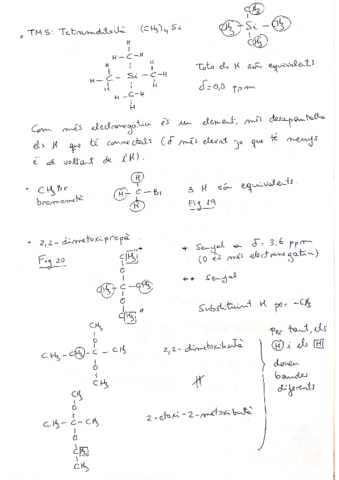 • TMS: Tetrametilsilà (CH₃)₄ Si
CH₃
CH₃ - Si - CH₃
CH₃
H
H - C - H
H H
H - C - Si - C - H
H H
H - C - H
H
Tots els H són equivalents
δ = 0,0 ppm
Com més electronegatiu és un element, més desapantalla
els H que té connectats (δ més elevat ja que té menys
ē al voltant de l'H).
• CH₃Br
bromometà
H
H - C - Br
H
3 H són equivalents.
Fig 19
• 2,2-dimetoxipropà
Fig 20
CH₃ *
O
CH₃ - C - CH₃
O
CH₃ *
* Senyal a δ = 3,6 ppm
(O és més electronegatiu)
** Senyal
Substituint H per -CH₃
CH₃
O
CH₃ - CH₂ - C - CH₃
O
CH₃
2,2-dimetoxibutà
CH₃
O
CH₃ - C - CH₃
O
CH₂
CH₃
2-etoxi-2-metoxibutà
Per tant, els
H i els H
donen
bandes
diferents